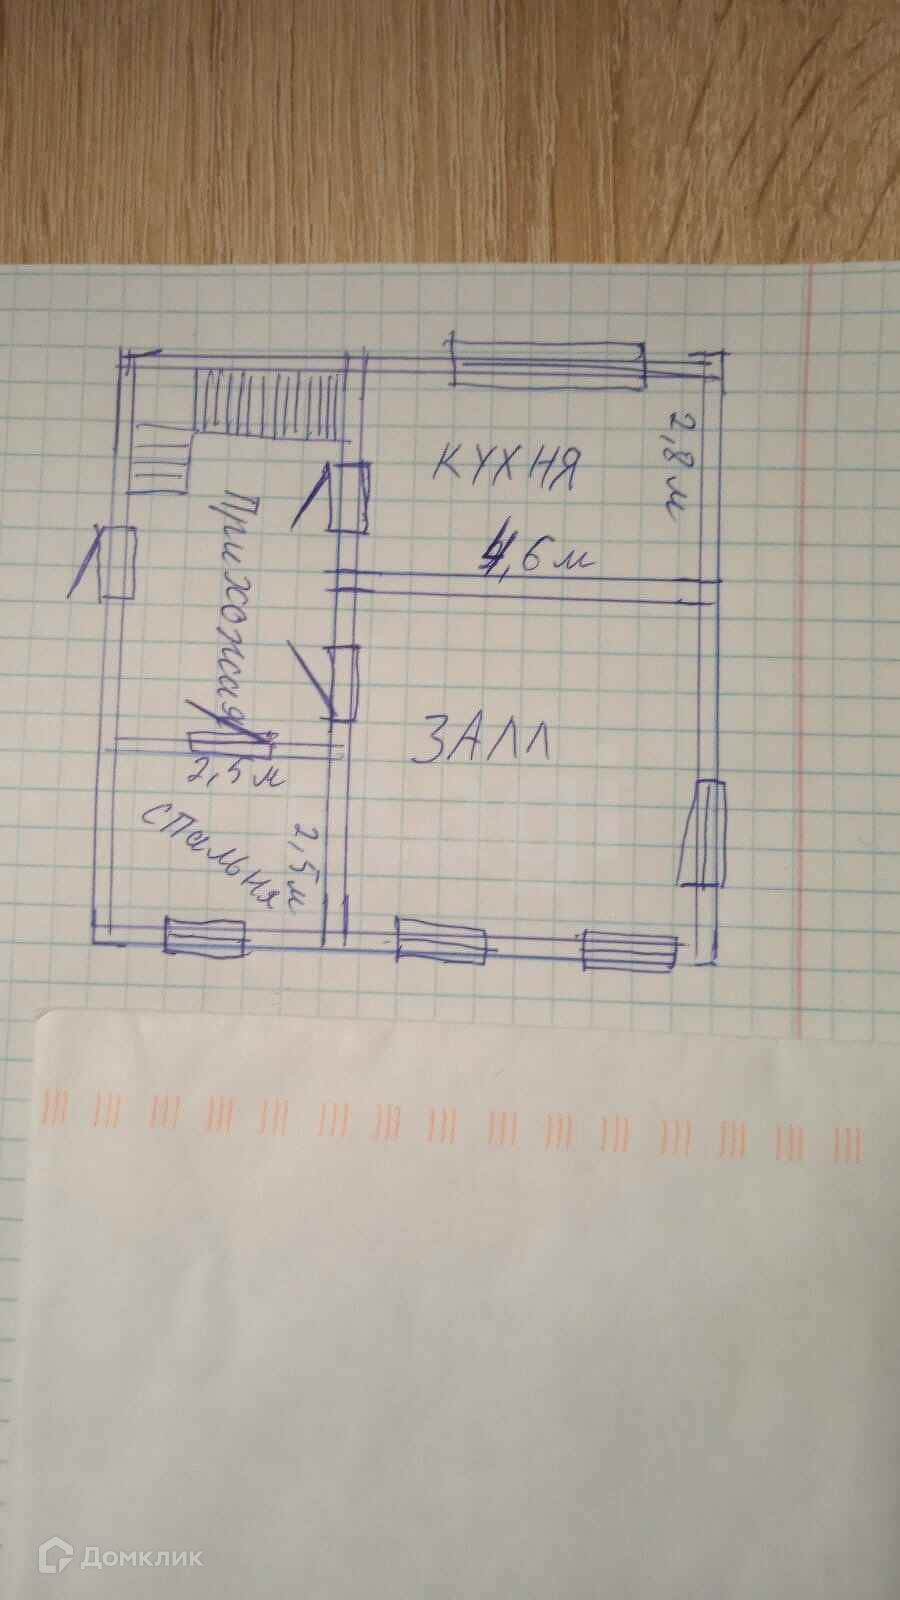 КУХНЯ
2,8 м
4,6 м
Прихожая
ЗАЛЛ
2,5 м
спальня
2,5 м
Домклик